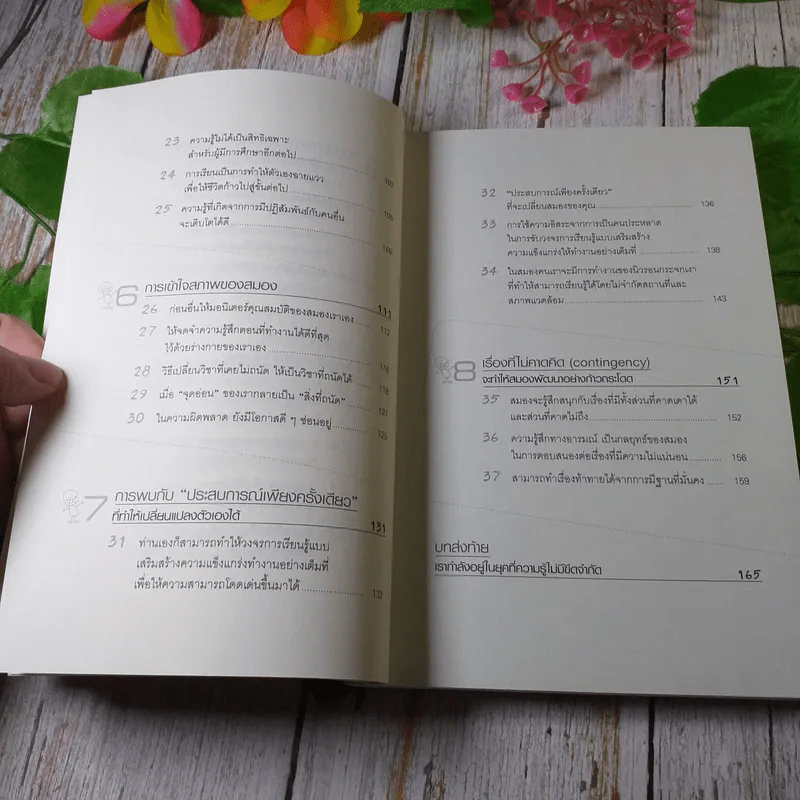 23 ความรู้ไม่ได้เป็นสิทธิเฉพาะ
สำหรับผู้มีการศึกษาอีกต่อไป
24 การเรียนเป็นการทำให้ตัวเองฉายแวว 100
เพื่อให้ชีวิตก้าวไปสู่ขั้นต่อไป
25 ความรู้ที่เกิดจากการมีปฏิสัมพันธ์กับคนอื่น 105
จะเติบโตได้ดี
108
6 การเข้าใจสภาพของสมอง 111
26 ก่อนอื่นให้มอนิเตอร์คุณสมบัติของสมองเราเอง 112
27 ให้จดจำความรู้สึกตอนที่ทำงานได้ดีที่สุด
ไว้ด้วยร่างกายของเราเอง
28 วิธีเปลี่ยนวิชาที่เคยไม่ถนัด ให้เป็นวิชาที่ถนัดได้ 118
29 เมื่อ “จุดอ่อน” ของเรากลายเป็น “สิ่งที่ถนัด” 121
30 ในความผิดพลาด ยังมีโอกาสดี ๆ ซ่อนอยู่ 125
7 การพบกับ “ประสบการณ์เพียงครั้งเดียว”
ที่ทำให้เปลี่ยนแปลงตัวเองได้ 131
31 ท่านเองก็สามารถทำให้วงจรการเรียนรู้แบบ
เสริมสร้างความแข็งแกร่งทำงานอย่างเต็มที่
เพื่อให้ความสามารถโดดเด่นขึ้นมาได้ 132
32 “ประสบการณ์เพียงครั้งเดียว”
ที่จะเปลี่ยนสมองของคุณ 136
33 การใช้ความอิสระจากการเป็นคนประหลาด
ในการขับวงจรการเรียนรู้แบบเสริมสร้าง
ความแข็งแกร่งให้ทำงานอย่างเต็มที่ 138
34 ในสมองคนเราจะมีการทำงานของนิวรอนกระจกเงา
ที่ทำให้สามารถเรียนรู้ได้โดยไม่จำกัดสถานที่และ
สภาพแวดล้อม 143
8 เรื่องที่ไม่คาดคิด (contingency)
จะทำให้สมองพัฒนาอย่างก้าวกระโดด 151
35 สมองจะรู้สึกสนุกกับเรื่องที่มีทั้งส่วนที่คาดเดาได้
และส่วนที่คาดไม่ถึง 152
36 ความรู้สึกทางอารมณ์ เป็นกลยุทธ์ของสมอง
ในการตอบสนองต่อเรื่องที่มีความไม่แน่นอน 156
37 สามารถทำเรื่องท้าทายได้จากการมีฐานที่มั่นคง 159
บทส่งท้าย
เรากำลังอยู่ในยุคที่ความรู้ไม่มีขีดจำกัด 165